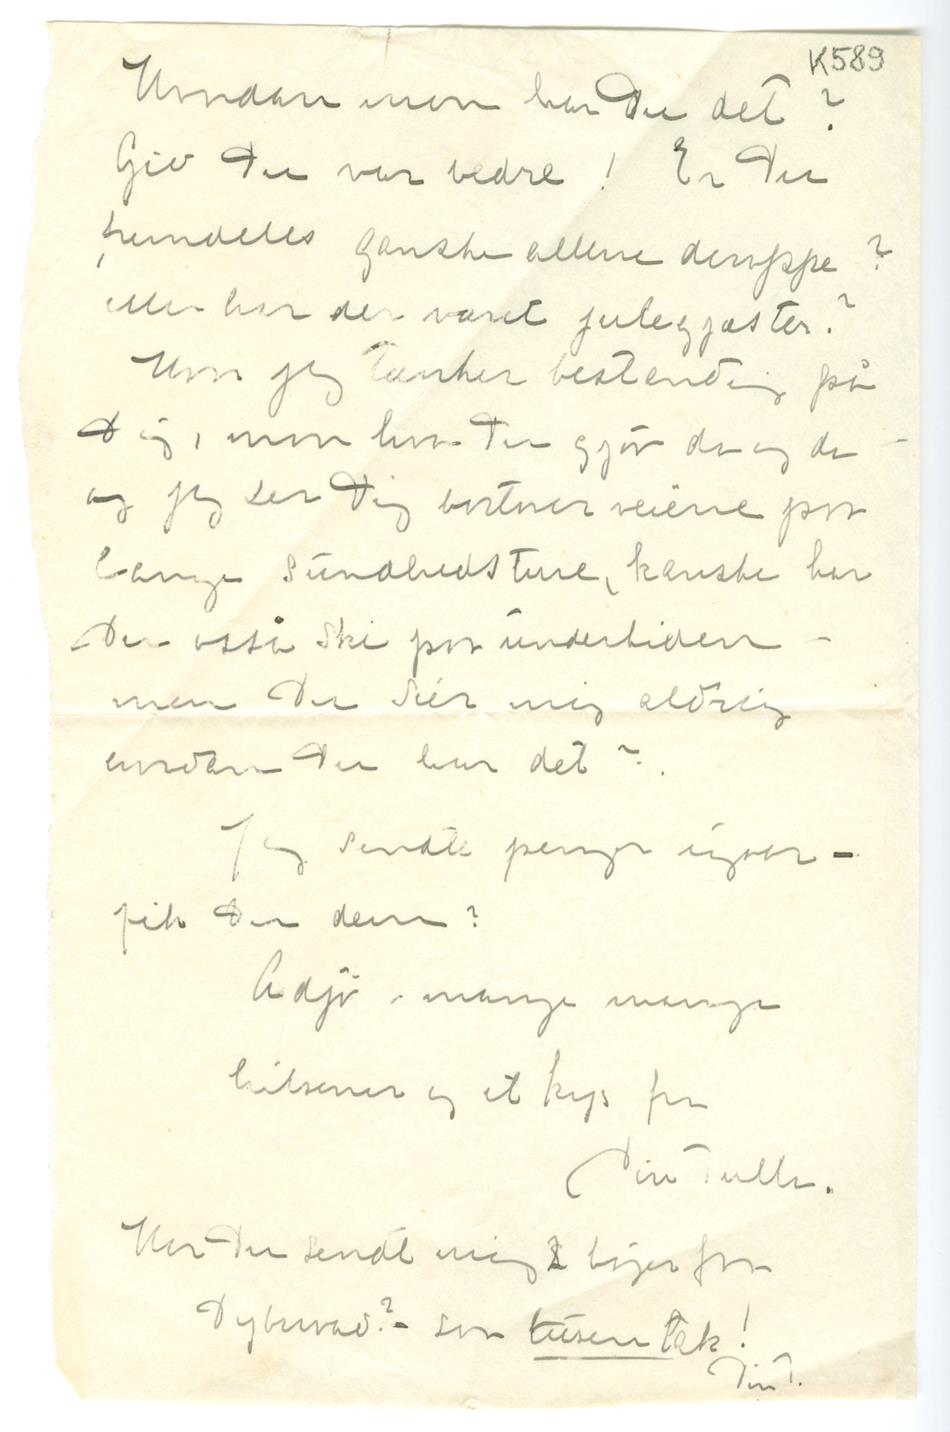 K589
Hvordan mon har Du det?
Giv Du var bedre! Er Du
fremdeles ganske allene deroppe?
eller har der været julegjæster?
Hvor jeg tænker bestændig på
Dig, mon hva Du gjør da og da –
og jeg ser Dig bortover veiene paa
lange Sundhedsture, kanske har
Du også Ski paa undertiden –
men Du siér mig aldrig
hvordan Du har det?.
Jeg sendte penge igaar –
fik Du dem?
Adjø – mange mange
hilsener og et kys fra
Din Tulla.
Har Du sendt mig 2 bøger fra
Dybwad? – saa tusen tak!
Din T.